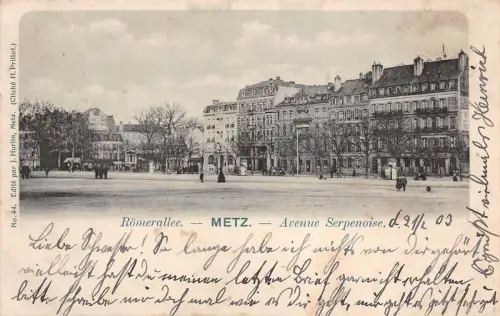 No. 44. Edité par J. Hurlin, Metz. (Cliché H. Prillot.)
Römerallee. -- METZ. — Avenue Serpenoise.
d. 21/2 03
Liebe Schwester! So lange habe ich nichts von dir gehört
vielleicht hast du meinen letzten Brief gar nicht erhalten
bitte schreibe mir doch mal wie es dir geht, mir geht es jetzt sehr gut
Heinrich